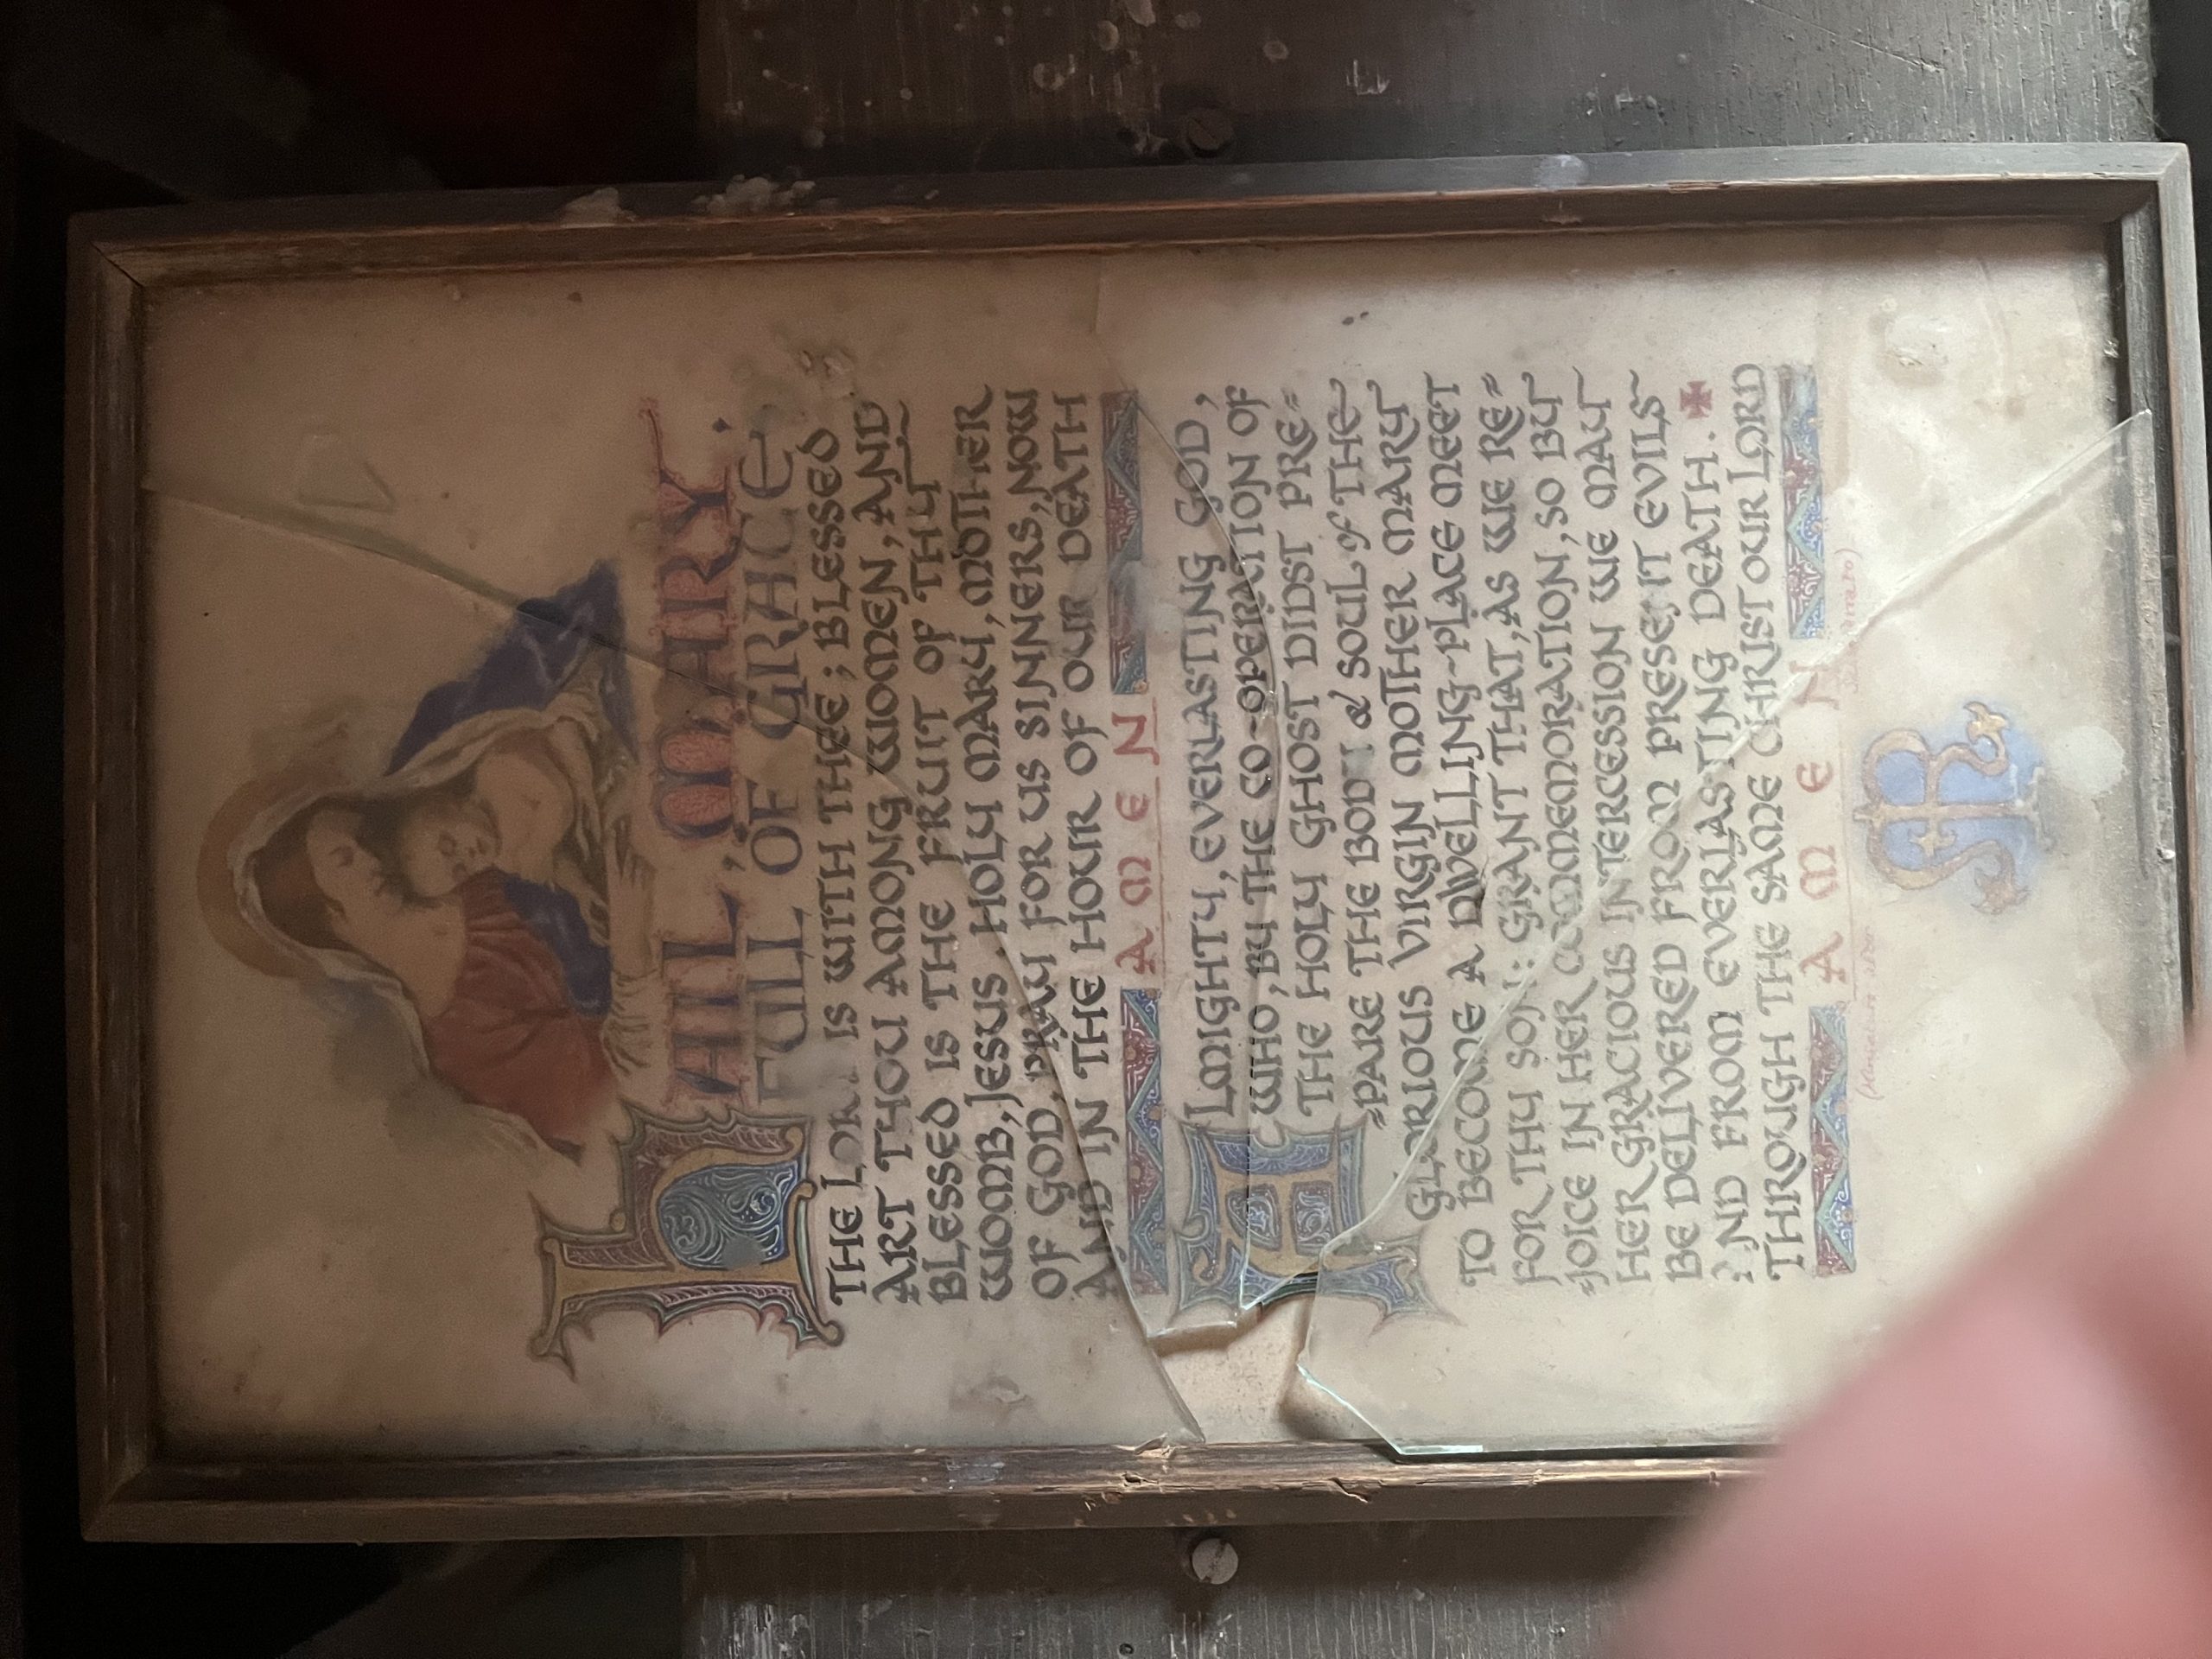 HAIL, MARY,
FULL OF GRACE
THE LORD IS WITH THEE; BLESSED
ART THOU AMONG WOMEN, AND
BLESSED IS THE FRUIT OF THY
WOMB, JESUS. HOLY MARY, MOTHER
OF GOD, PRAY FOR US SINNERS, NOW
AND IN THE HOUR OF OUR DEATH
AMEN
ALMIGHTY, EVERLASTING GOD,
WHO, BY THE CO-OPERATION OF
THE HOLY GHOST DIDST PRE=
=PARE THE BODY & SOUL of THE
GLORIOUS VIRGIN MOTHER MARY
TO BECOME A DWELLING-PLACE MEET
FOR THY SON: GRANT THAT, AS WE RE=
=JOICE IN HER COMMEMORATION, SO BY
HER GRACIOUS INTERCESSION WE MAY
BE DELIVERED FROM PRESENT EVILS
AND FROM EVERLASTING DEATH. ✠
THROUGH THE SAME CHRIST OUR LORD
AMEN
(Miniature after